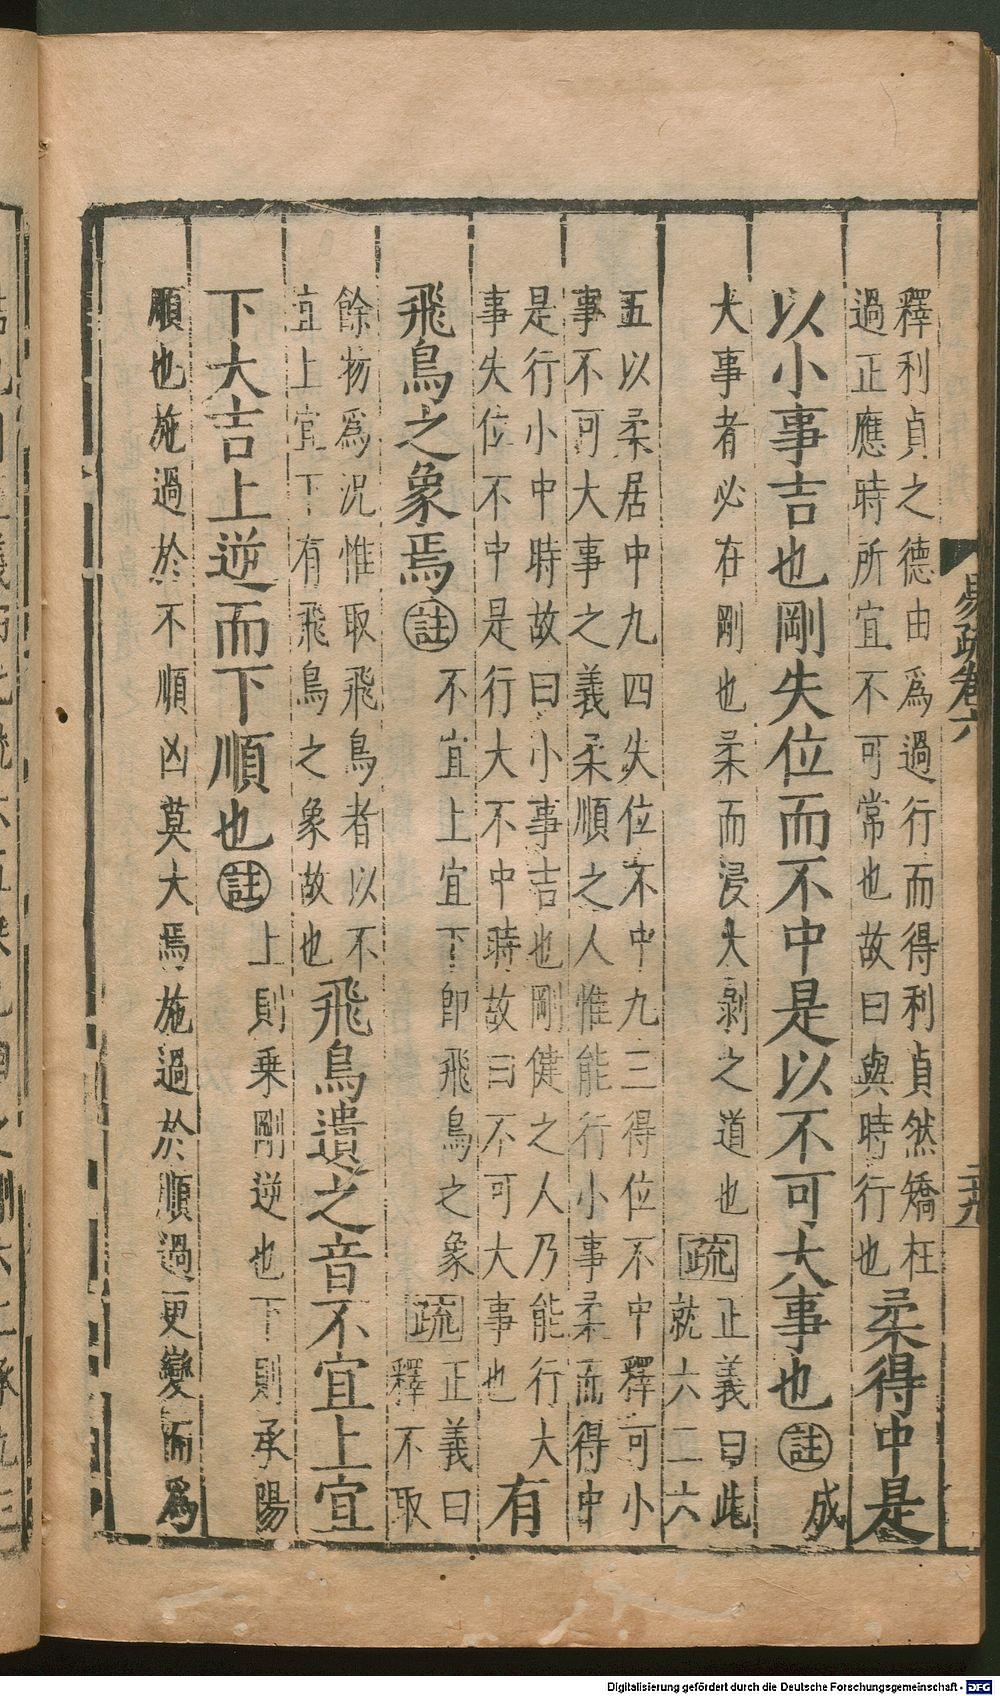 易疏卷六
釋利貞之德由爲過行而得利貞然矯枉
過正應時所宜不可常也故曰與時行也
柔得中是
以小事吉也剛失位而不中是以不可大事也註成
大事者必在剛也柔而浸大剝之道也疏正義曰此
就六二六
五以柔居中九四失位不中九三得位不中釋可小
事不可大事之義柔順之人惟能行小事柔而得中
是行小中時故曰小事吉也剛健之人乃能行大
事失位不中是行大不中時故曰不可大事也
有
飛鳥之象焉註不宜上宜下即飛鳥之象疏正義曰
釋不取
餘物爲況惟取飛鳥者以不
宜上宜下有飛鳥之象故也
飛鳥遺之音不宜上宜
下大吉上逆而下順也註上則乘剛逆也下則承陽
順也施過於不順凶莫大焉施過於順過更變而爲
Digitalisierung gefördert durch die Deutsche Forschungsgemeinschaft - DFG